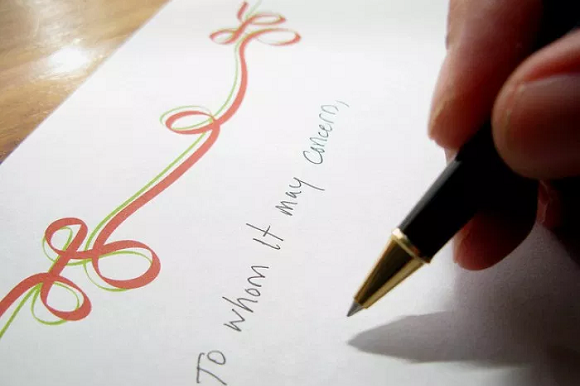 To whom It may concern,